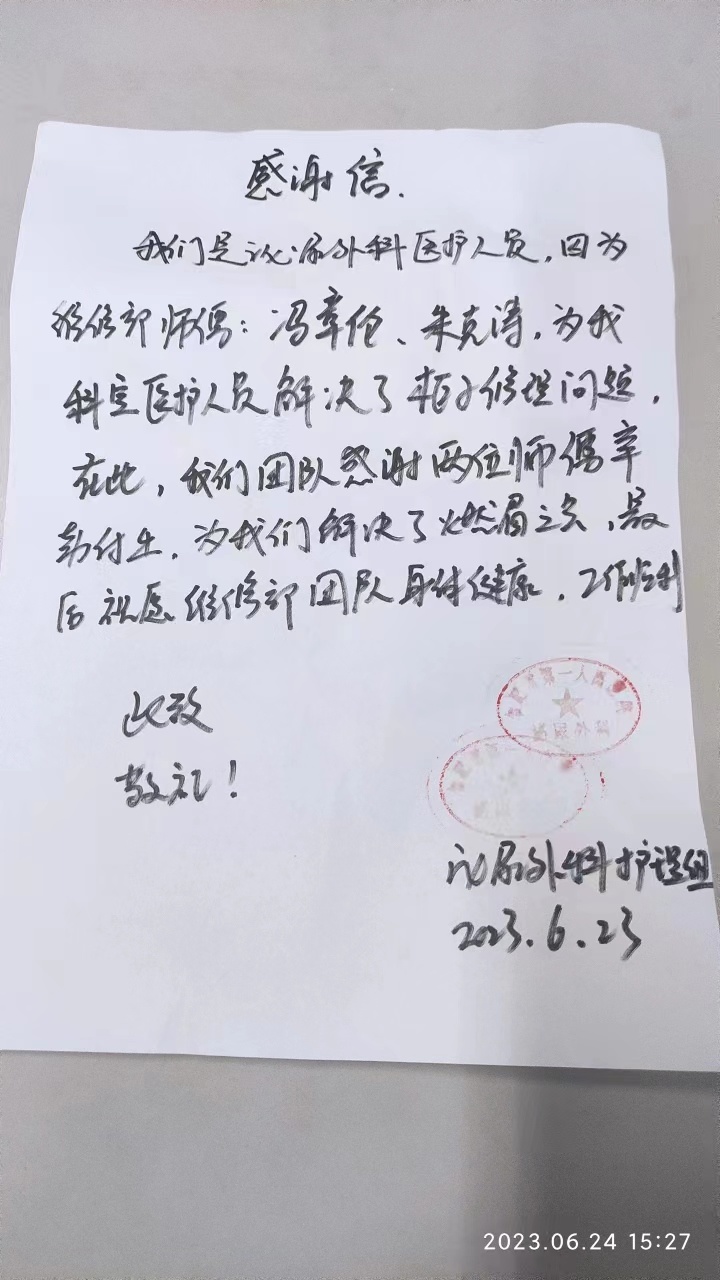 感谢信.
我们是泌尿外科医护人员,因为
维修部师傅:冯章伦、朱克涛,为我
科室医护人员解决了柜子修理问题,
在此,我们团队感谢两位师傅辛
勤付出,为我们解决了燃眉之急,最
后祝愿维修部团队身体健康,工作顺利
此致
敬礼!
第一人民医院
泌尿外科
泌尿外科护理组
2023.6.23
2023.06.24 15:27